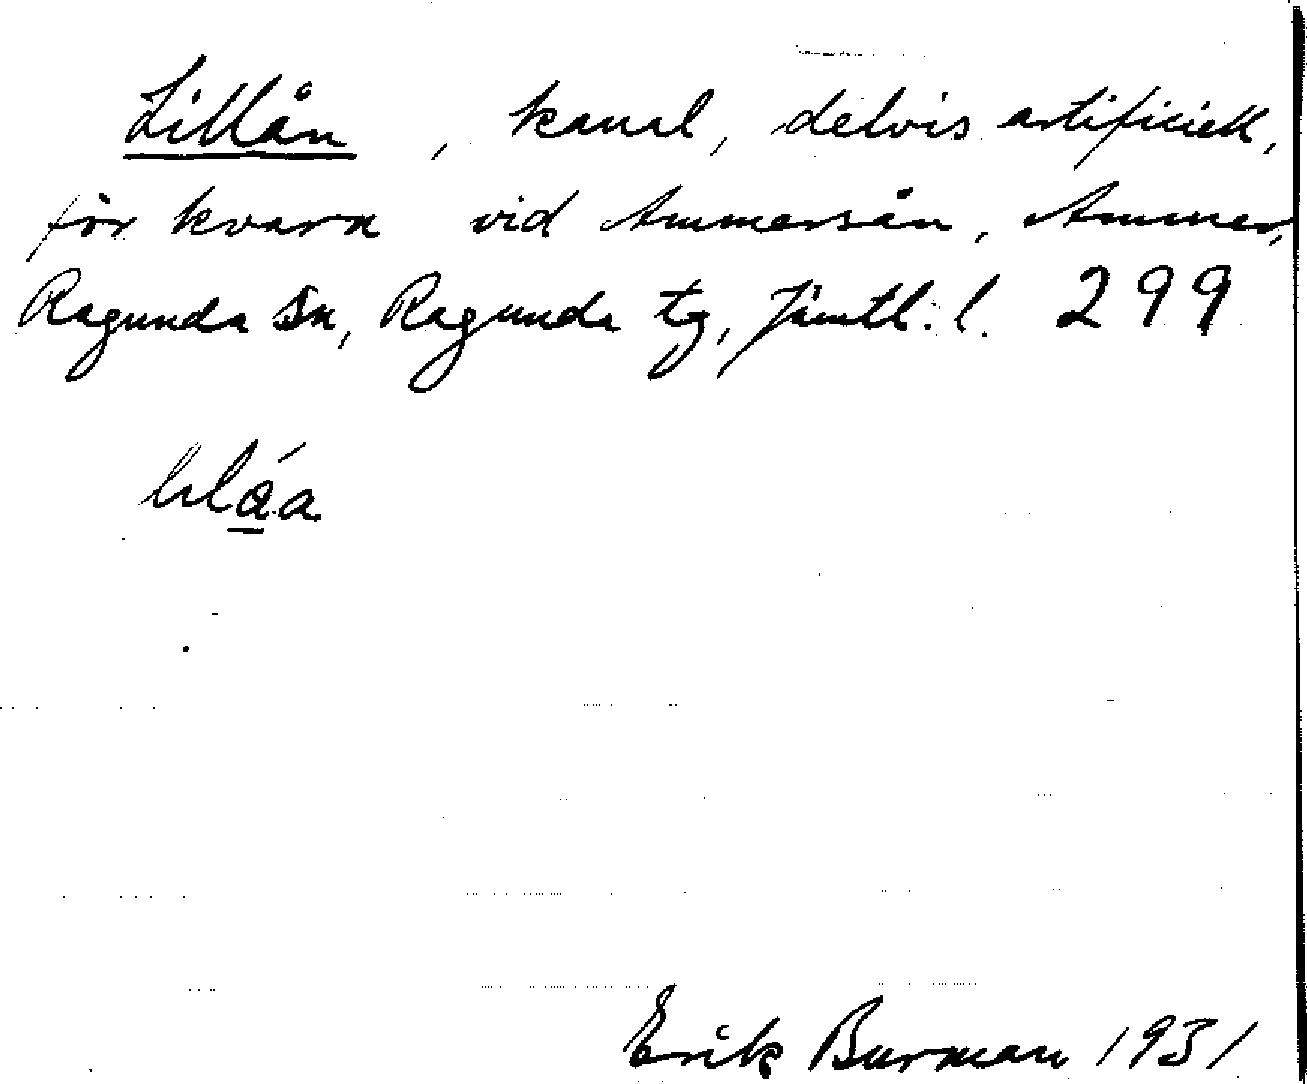 Lillån, kanal, delvis artificiell,
för kvarn vid Ammersån, Ammer,
Ragunda Sn, Ragunda tg, Jämtl. l. 299
Erik Burman 1931